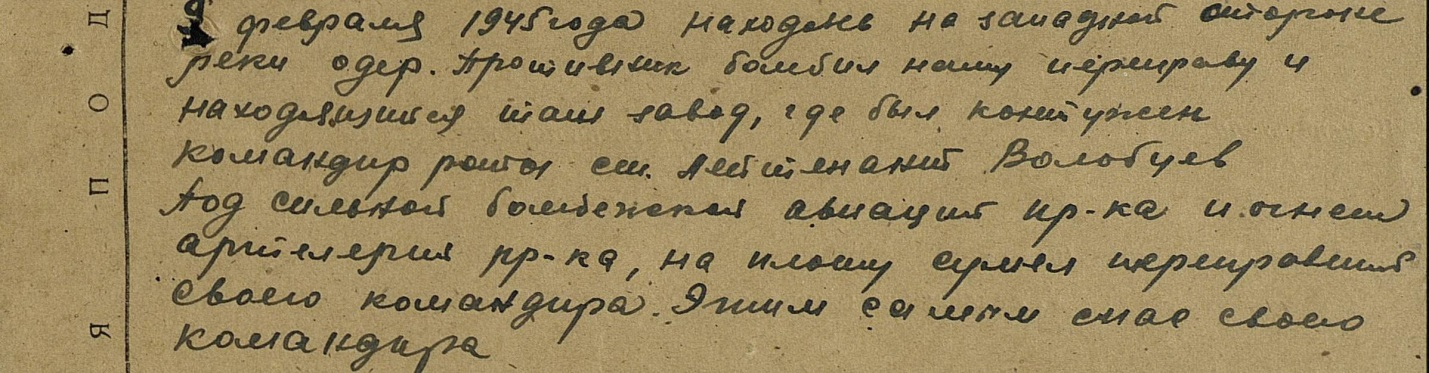 9 февраля 1945 года находясь на западной стороне
реки одер. Противник бомбил нашу переправу и
находящийся там завод, где был контужен
командир роты ст. лейтенант Волобуев
Под сильной бомбежкой авиации пр-ка и огнем
артелерия пр-ка, на плоту сумел переправить
своего командира. Этим самым спас своего
командира
Д
О
П
Я